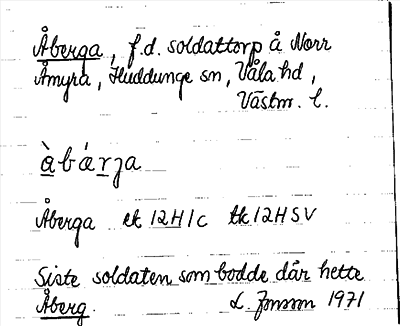 Åberga, f.d. soldattorp å Norr
Åmyra, Huddunge sn, Våla hd,
Västm. l.
àbárja
Åberga ek 12H1c tk 12HSV
Siste soldaten som bodde där hette
Åberg. L Jonsson 1971